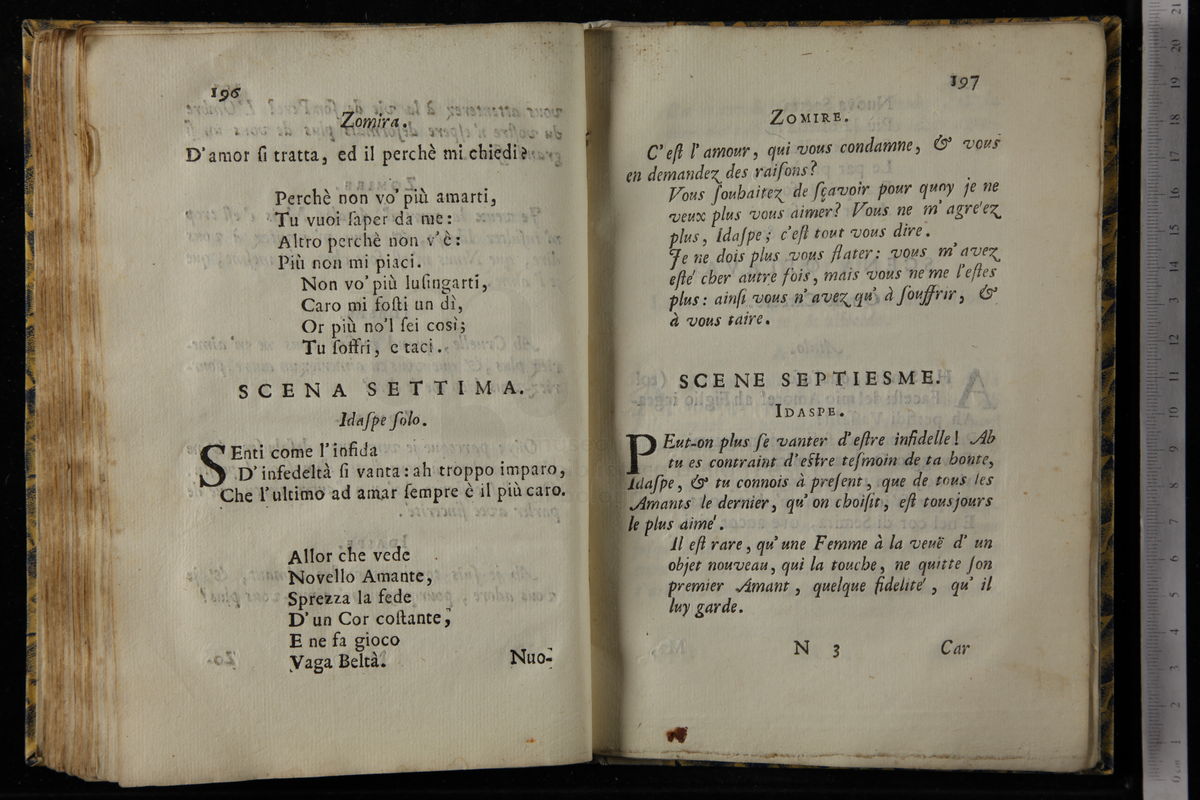 196
Zomira.
D'amor ſi tratta, ed il perchè mi chiedi?
Perchè non vo' più amarti,
Tu vuoi ſaper da me:
Altro perchè non v'è:
Più non mi piaci.
Non vo' più luſingarti,
Caro mi foſti un dì,
Or più no'l ſei così;
Tu ſoffri, e taci.
SCENA SETTIMA.
Idaſpe ſolo.
SEnti come l'infida
D'infedeltà ſi vanta: ah troppo imparo,
Che l'ultimo ad amar ſempre è il più caro.
Allor che vede
Novello Amante,
Sprezza la fede
D'un Cor coſtante,
E ne fa gioco
Vaga Beltà.
Nuo-
197
ZOMIRE.
C'eſt l'amour, qui vous condamne, & vous
en demandez des raiſons?
Vous ſouhaitez de ſçavoir pour quoy je ne
veux plus vous aimer? Vous ne m'agre'ez
plus, Idaſpe; c'eſt tout vous dire.
Je ne dois plus vous flater: vous m'avez
eſté cher autre fois, mais vous ne me l'eſtes
plus: ainſi vous n'avez qu'à ſouffrir, &
à vous taire.
SCENE SEPTIESME.
IDASPE.
PEut-on plus ſe vanter d'eſtre infidelle! Ah
tu es contraint d'eſtre teſmoin de ta honte,
Idaſpe, & tu connois à preſent, que de tous les
Amants le dernier, qu'on choiſit, eſt tousjours
le plus aimé.
Il eſt rare, qu'une Femme à la veuë d'un
objet nouveau, qui la touche, ne quitte ſon
premier Amant, quelque fidelité, qu'il
luy garde.
N 3
Car